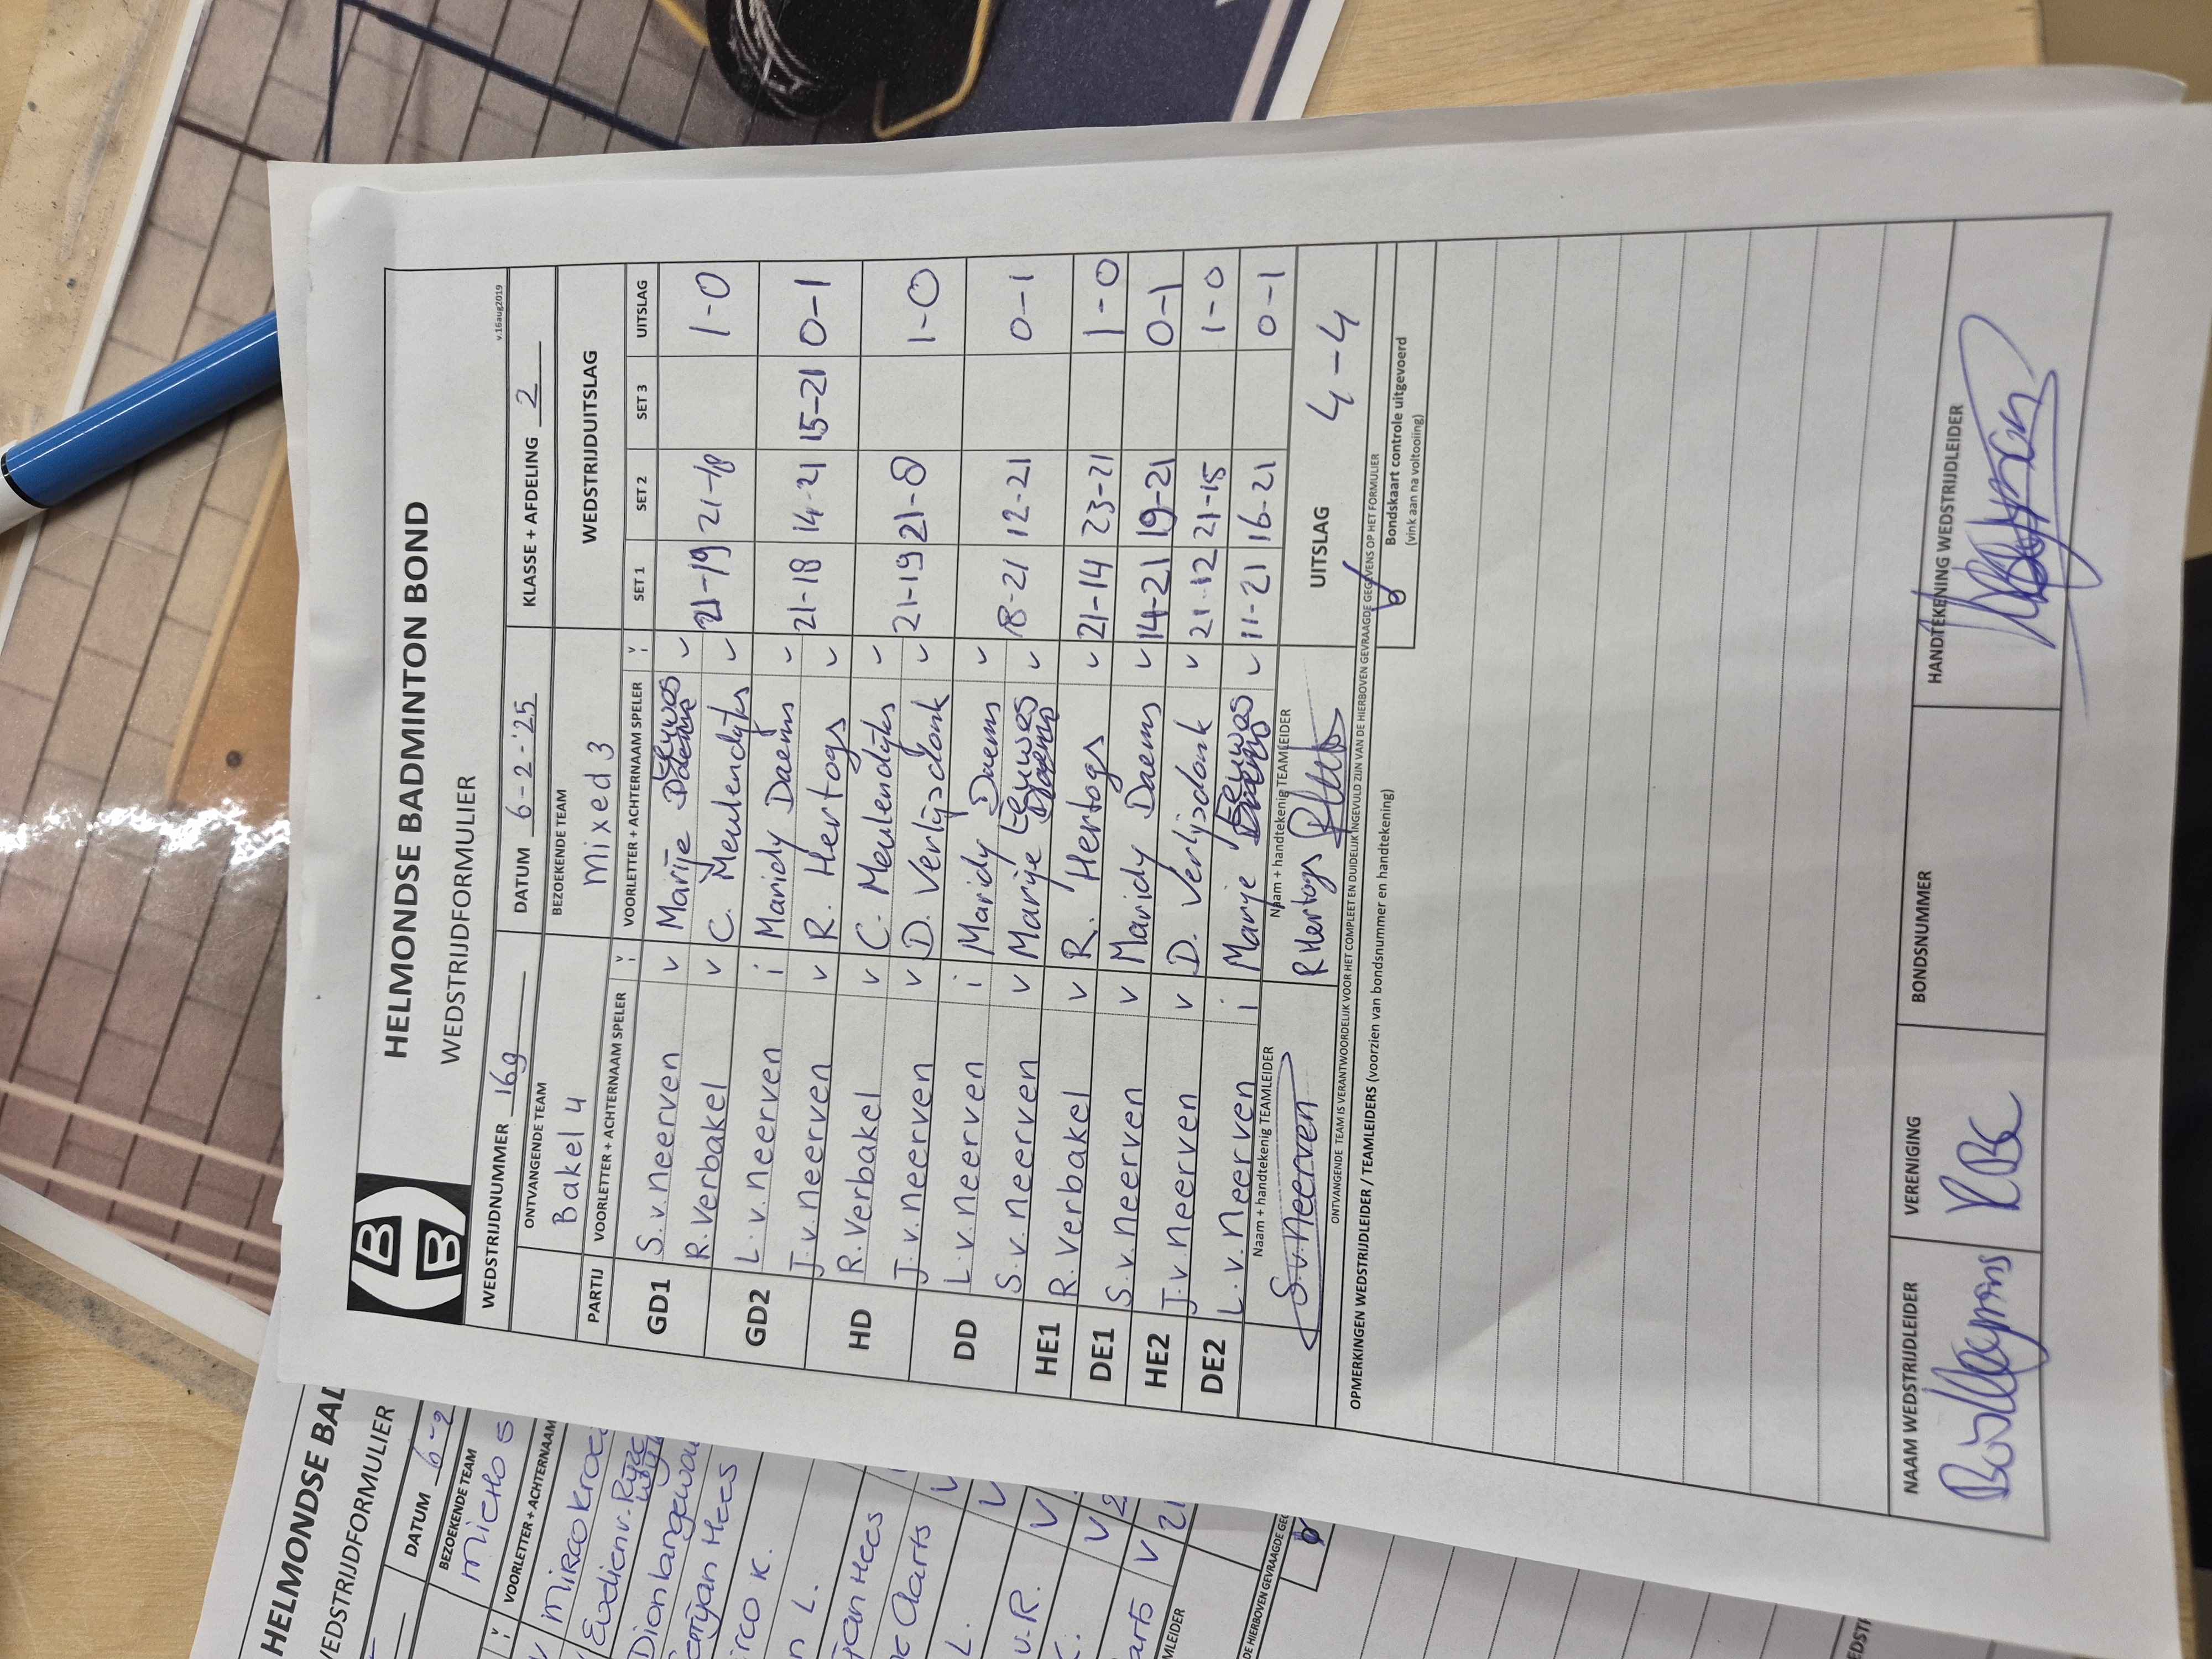 HELMONDSE BADMINTON BOND
WEDSTRIJDFORMULIER
v.16aug2019
WEDSTRIJDNUMMER 169 DATUM 6-2-'25 KLASSE + AFDELING 2
ONTVANGENDE TEAM BEZOEKENDE TEAM WEDSTRIJDUITSLAG
Bakel 4 Mixed 3
PARTIJ VOORLETTER + ACHTERNAAM SPELER V/I VOORLETTER + ACHTERNAAM SPELER V/I SET 1 SET 2 SET 3 UITSLAG
GD1 S.v.Neerven v Marije Leeuwas v
R.Verbakel v C. Meulendijks v 21-19 21-18 1-0
GD2 L.v.Neerven i Maridy Daems v
J.v.Neerven v R. Hertogs v 21-18 14-21 15-21 0-1
HD R.Verbakel v C. Meulendijks v
J.v.Neerven v D. Verlijsdonk v 21-19 21-8 1-0
DD L.v.Neerven i Maridy Daems v
S.v.Neerven v Marije Leeuwas v 18-21 12-21 0-1
HE1 R.Verbakel v R. Hertogs v 21-14 23-21 1-0
DE1 S.v.Neerven v Maridy Daems v 14-21 19-21 0-1
HE2 J.v.Neerven v D. Verlijsdonk v 21-12 21-15 1-0
DE2 L.v.Neerven i Marije Leeuwas v 11-21 16-21 0-1
Naam + handtekenig TEAMLEIDER Naam + handtekenig TEAMLEIDER
S.v.Neerven R Hertogs UITSLAG 4-4
ONTVANGENDE TEAM IS VERANTWOORDELIJK VOOR HET COMPLEET EN DUIDELIJK INGEVULD ZIJN VAN DE HIERBOVEN GEVRAAGDE GEGEVENS OP HET FORMULIER
OPMERKINGEN WEDSTRIJDLEIDER / TEAMLEIDERS (voorzien van bondsnummer en handtekening)
Bondskaart controle uitgevoerd
(vink aan na voltooiing)
NAAM WEDSTRIJDLEIDER VERENIGING BONDSNUMMER HANDTEKENING WEDSTRIJDLEIDER
HELMONDSE BAD
WEDSTRIJDFORMULIER
DATUM 6-2
BEZOEKENDE TEAM
MICHO 5
VOORLETTER + ACHTERNAAM
Mirco
Evodien v.
Dion Langewou
Hees
irco K.
n L.
jan Hees
Clarts
L.
v.R.
K.
arts V 21
MLEIDER
DE HIERBOVEN GEVRAAGDE GE